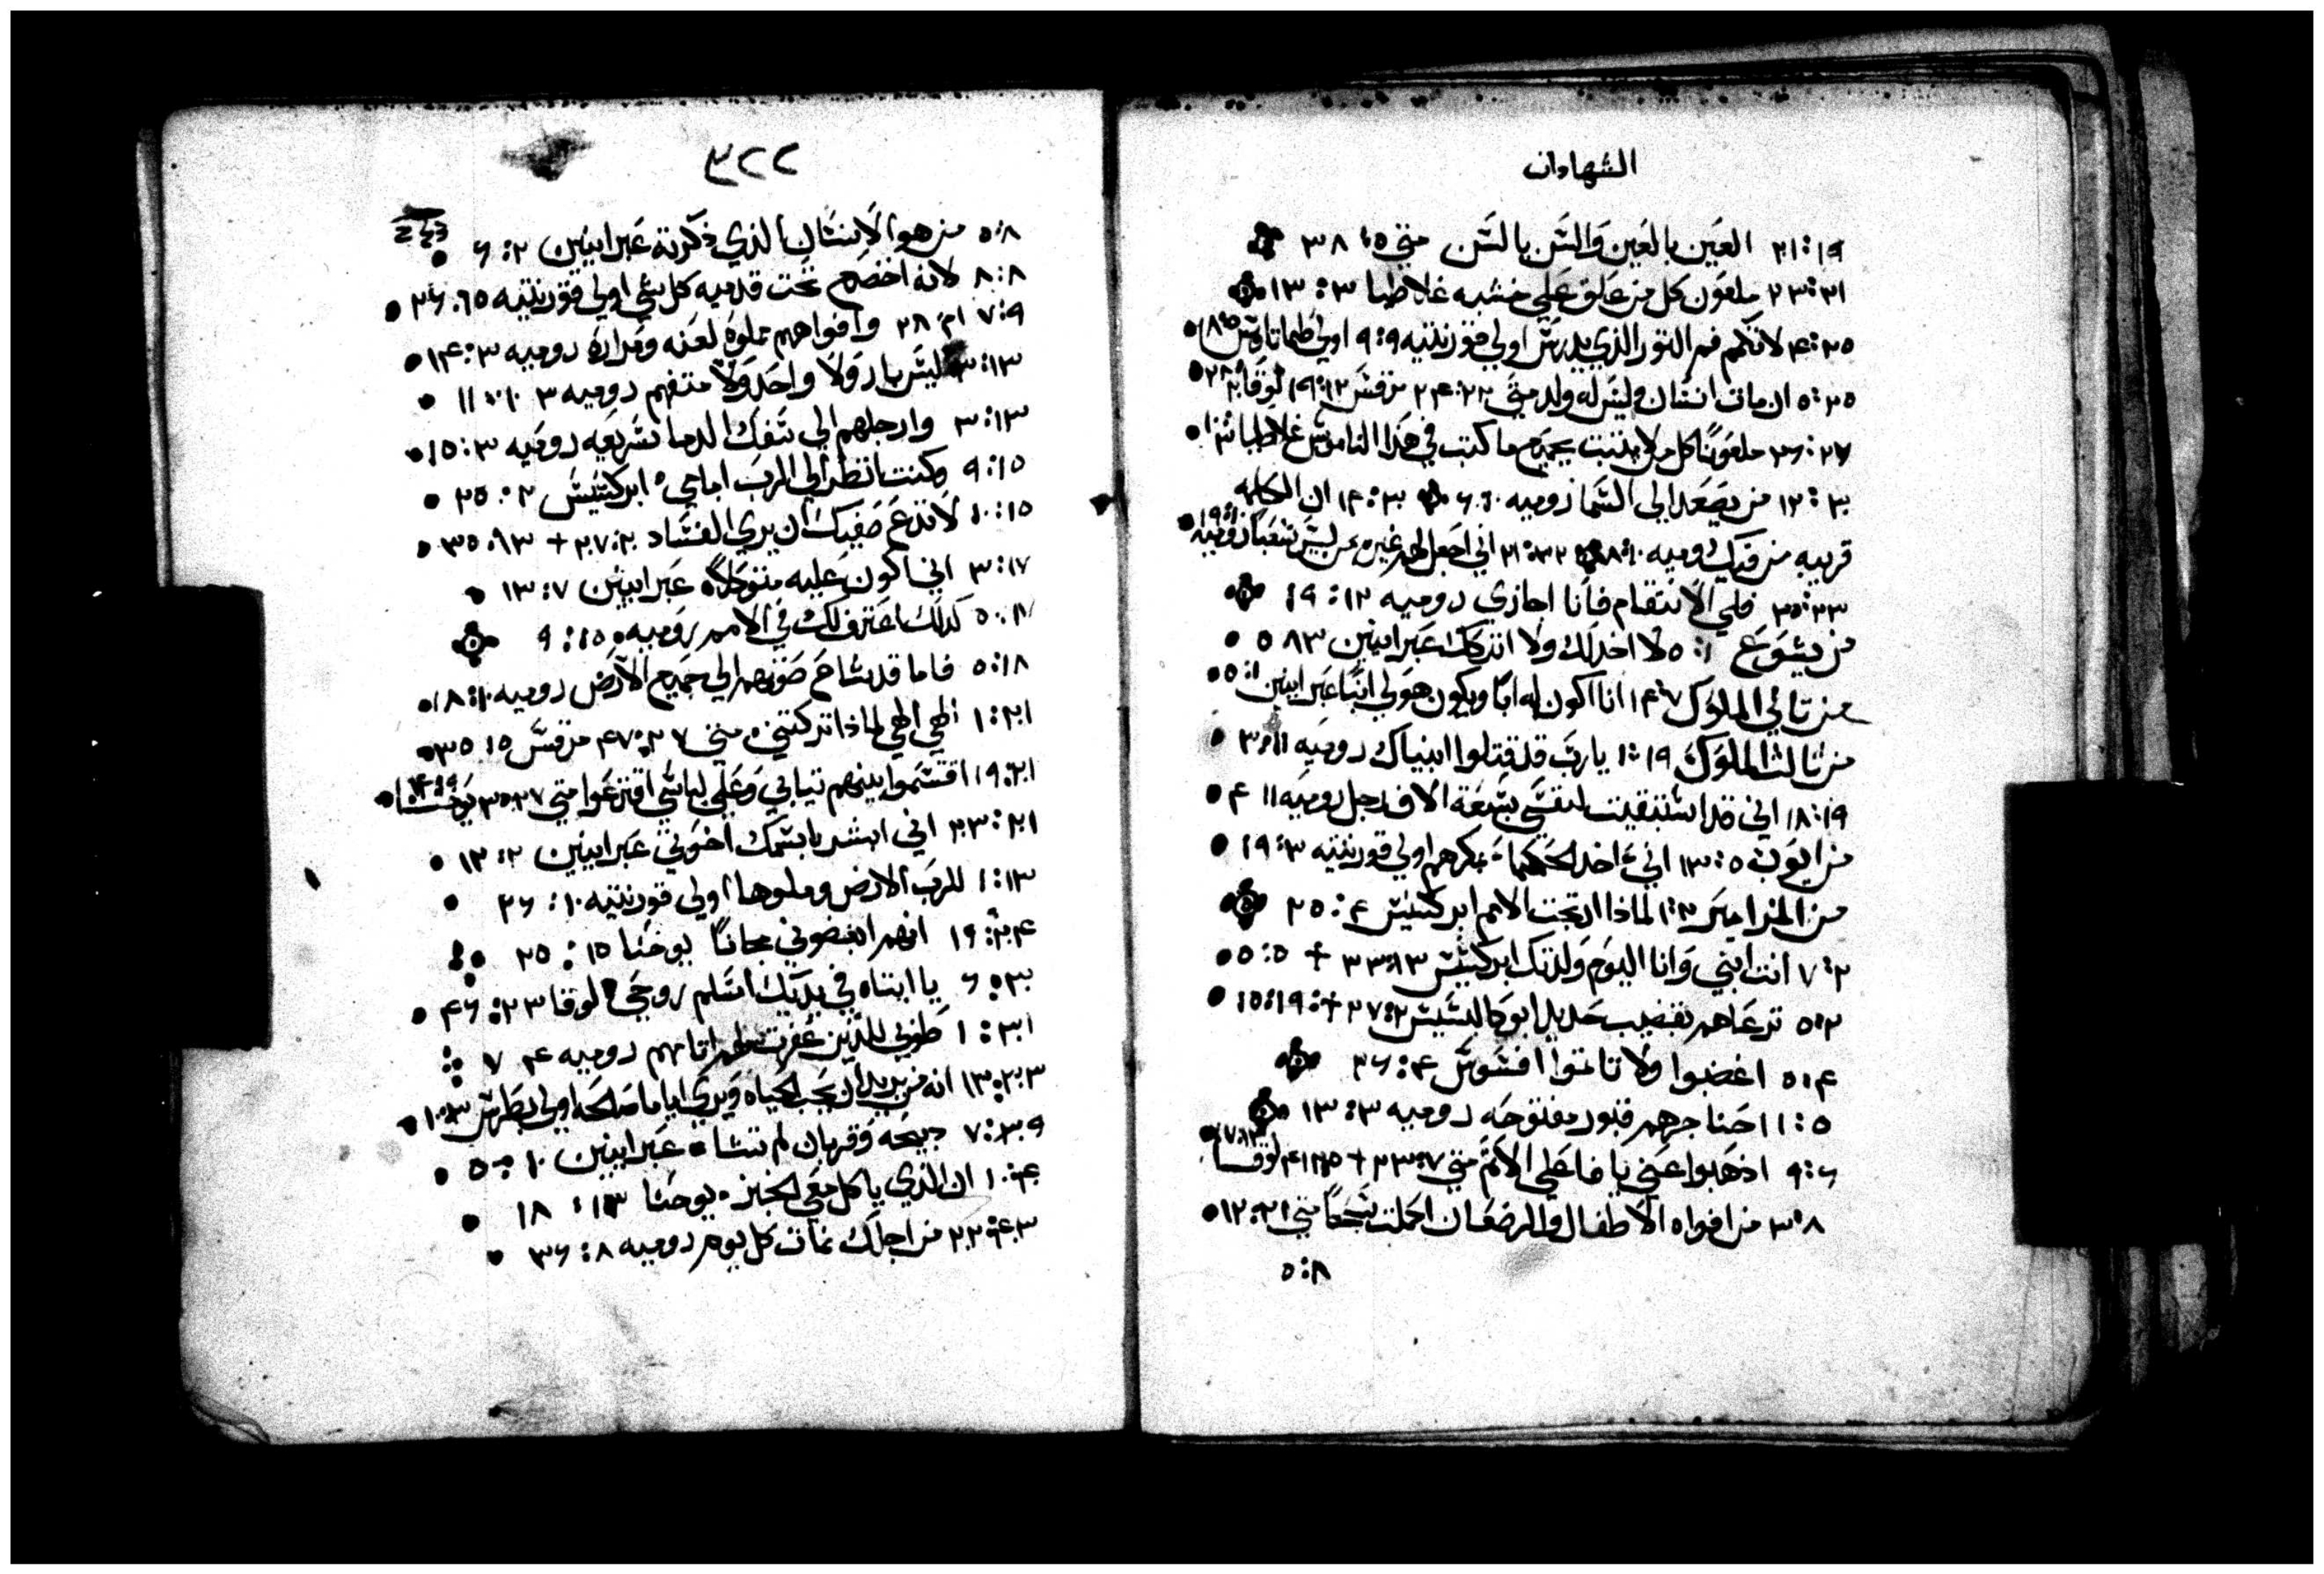 الشهادات
٢١:١٩ العين بالعين والسن بالسن متى ٥: ٣٨
٢٣:٢١ ملعون كل من علق على خشبه غلاطيا ٣: ١٣
٤:٢٥ لا تكمم فم الثور الذي يدرس اولي قورنتيه ٩:٩ اولي طيماتاوس ١٨:٥
٥:٢٥ ان مات انسان وليس له ولد متى ٢٢:٢٤ مرقس ١٢:١٩ لوقا ٢٠ ٢٨
٢٦:٢٧ ملعونًا كل من لا يثبت بجميع ما كتب في هذا الناموس غلاطيا ٣:١٠
١٢:٣٠ من يصعد الي السما روميه ١٠:٦ ١٤:٣٠ ان الكلمه
قريبه من فيك روميه ١٠:٨ ٢١:٣٢ اني اجعل لهم غيره من ليس شعبا روميه ١٩:١٠
٣٥:٣٢ فلي الانتقام فانا اجازي روميه ١٢: ١٩
من يشوع ١: ٥ لا اخذلك ولا اتركك عبرانيين ١٣ ٥
من تاني الملوك ٧ ١٤ انا اكون له ابًا ويكون هو لي ابنًا عبرانيين ١: ٥
من تالت الملوك ١٩: ١٠ يا رب قد قتلوا انبياك روميه ١١: ٣
١٨:١٩ اني قد استبقيت لنفسي سبعة الاف رجل روميه ١١ ٤
من ايوب ٥: ١٣ اني اخد الحكماء بمكرهم اولي قورنتيه ٣: ١٩
من المزامير ٢:١ لماذا ارتجت الامم ابركسيس ٤: ٢٥
٢: ٧ انت ابني وانا اليوم ولدتك ابركسيس ١٣: ٣٣ + ٥: ٥
٥:٢ ترعاهم بقضيب حديد ابوكاليسيس ٢: ٢٧ + ١٩: ١٥
٤: ٥ اغضبوا ولا تاتموا افسوس ٤: ٢٦
٥: ١١ حناجرهم قبور مفتوحه روميه ٣: ١٣
٦: ٩ اذهبوا عني يا فاعلي الاتم متى ٧: ٢٣ + ٢٥: ٤١ لوقا ١٣: ٢٧
٨: ٣ من افواه الاطفال والرضعان اكملت تسبحًا متى ٢١: ١٢
٨: ٥
٣٢٢
٨: ٥ من هو الانسان الذي ذكرته عبرانيين ٢: ٦
٨:٨ لانه اخضع تحت قدميه كل شي اولي قورنتيه ١٥: ٢٦
٧:٩ وافواههم مملوه لعنه ومراره روميه ٣: ١٤
٣:١٣ ليس بار ولا واحد ولا متفهم روميه ٣ ١٠: ١١
٣:١٣ وارجلهم الي سفك الدما سريعه روميه ٣: ١٥
٩:١٥ وكنت انظر الي الرب امامي ابركسيس ٢: ٢٥
١٠:١٥ لا تدع صفيك ان يري الفساد ٢: ٢٧ + ١٣: ٣٥
٣:١٧ اني اكون عليه متوكلًا عبرانيين ٧: ١٣
كذلك اعترف لك في الامم روميه ١٥: ٩
٥:١٨ فاما قد شاع صوتهم الي جميع الارض روميه ١٠: ١٨
١:٢١ الهي الهي لماذا تركتني متى ٢٧: ٤٧ مرقس ١٥: ٣٥
١٩:٢١ اقتسموا بينهم تيابي وعلى لباسي اقترعوا متى ٢٧: ٣٥ يوحنا
٢٣:٢١ اني ابشر باسمك اخوتي عبرانيين ٢: ١٢
١:٢٣ للرب الارض وملوها اولي قورنتيه ١٠: ٢٦
انهم ابغضوني مجانًا يوحنا ١٥: ٢٥
٦:٣٠ يا ابتاه في يديك اسلم روحي لوقا ٢٣: ٤٦
٣١: ١ طوبي للذين غفرت لهم اتامهم روميه ٤ ٧
انه من يريد ان يحب الحياه ويري اياما صالحه اولي بطرس ٣: ١٠
٧:٣٩ دبيحه وقربان لم تشاه عبرانيين ١٠: ٥
ان الذي ياكل معي الخبز يوحنا ١٣: ١٨
٢٢:٤٣ من اجلك نمات كل يوم روميه ٨: ٣٦